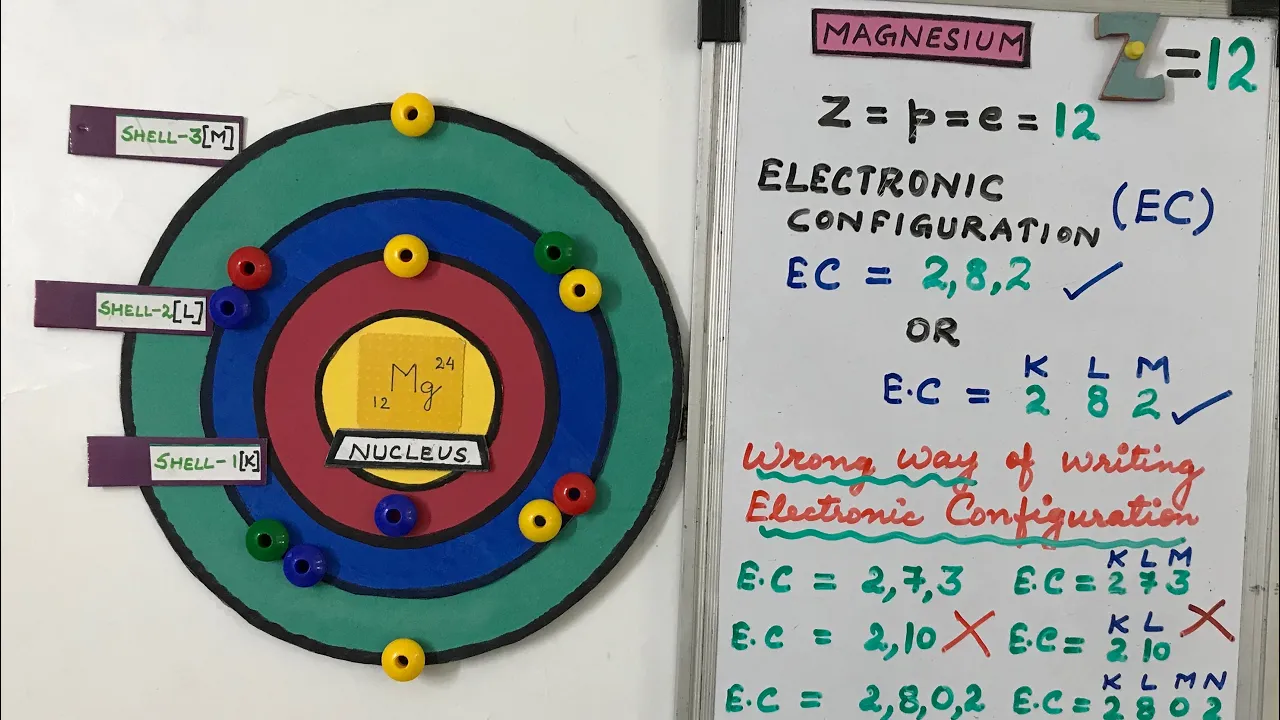 MAGNESIUM
Z = 12
Z = p = e = 12
ELECTRONIC
CONFIGURATION (EC)
EC = 2,8,2 ✓
OR
K L M
E.C = 2 8 2 ✓
Wrong way of writing
Electronic Configuration
K L M
E.C = 2,7,3 E.C = 2 7 3
K L
E.C = 2,10 X E.C = 2 10 X
K L M N
E.C = 2,8,0,2 E.C = 2 8 0 2
SHELL-3[M]
SHELL-2[L]
SHELL-1[K]
24
Mg
12
NUCLEUS